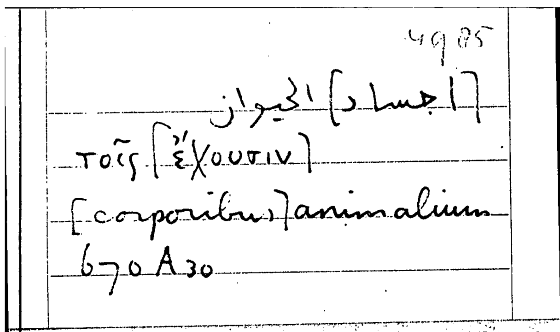 4985
[اجساد] الحيوان
τοῖς [ἔχουσιν]
[corporibus] animalium
670 A 30